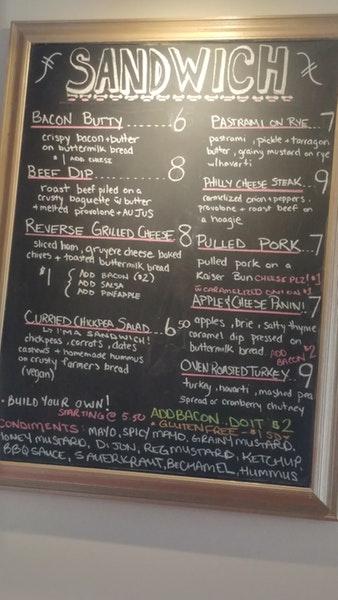 SANDWICH
BACON BUTTY ..... 6
crispy bacon + butter
on buttermilk bread
$1 ADD CHEESE
BEEF DIP ......... 8
roast beef piled on a
crusty baguette w butter
+ melted provolone + AU JUS
REVERSE GRILLED CHEESE 8
sliced ham, gruyere cheese baked
chives + toasted buttermilk bread
$1 { ADD BACON ($2)
ADD SALSA
ADD PINEAPPLE
CURRIED CHICKPEA SALAD ... 6.50
↳ I'M A SANDWICH!
chickpeas, carrots, dates
cashews + homemade hummus
on crusty farmers bread
(vegan)
PASTRAMI ON RYE .. 7
pastrami, pickle + tarragon
butter, grainy mustard on rye
w/havarti
PHILLY CHEESE STEAK .. 9
caramelized onion + peppers,
provolone + roast beef on
a hoagie
PULLED PORK .. 7
pulled pork on a
Kaiser Bun CHEESE PLZ! $1
CARAMELIZED ONION $1
APPLE & CHEESE PANINI .. 7
apples, brie, salty thyme
caramel dip pressed on
buttermilk bread ADD BACON $2
OVEN ROASTED TURKEY .. 9
turkey, havarti, mashed pea
spread or cranberry chutney
• BUILD YOUR OWN!
STARTING @ 5.50
ADD BACON. DO IT $2
* GLUTEN FREE - $1.50 *
CONDIMENTS: MAYO, SPICY MAYO, GRAINY MUSTARD,
HONEY MUSTARD, DIJON, REG MUSTARD, KETCHUP,
BBQ SAUCE, SAUERKRAUT, BECHAMEL, HUMMUS